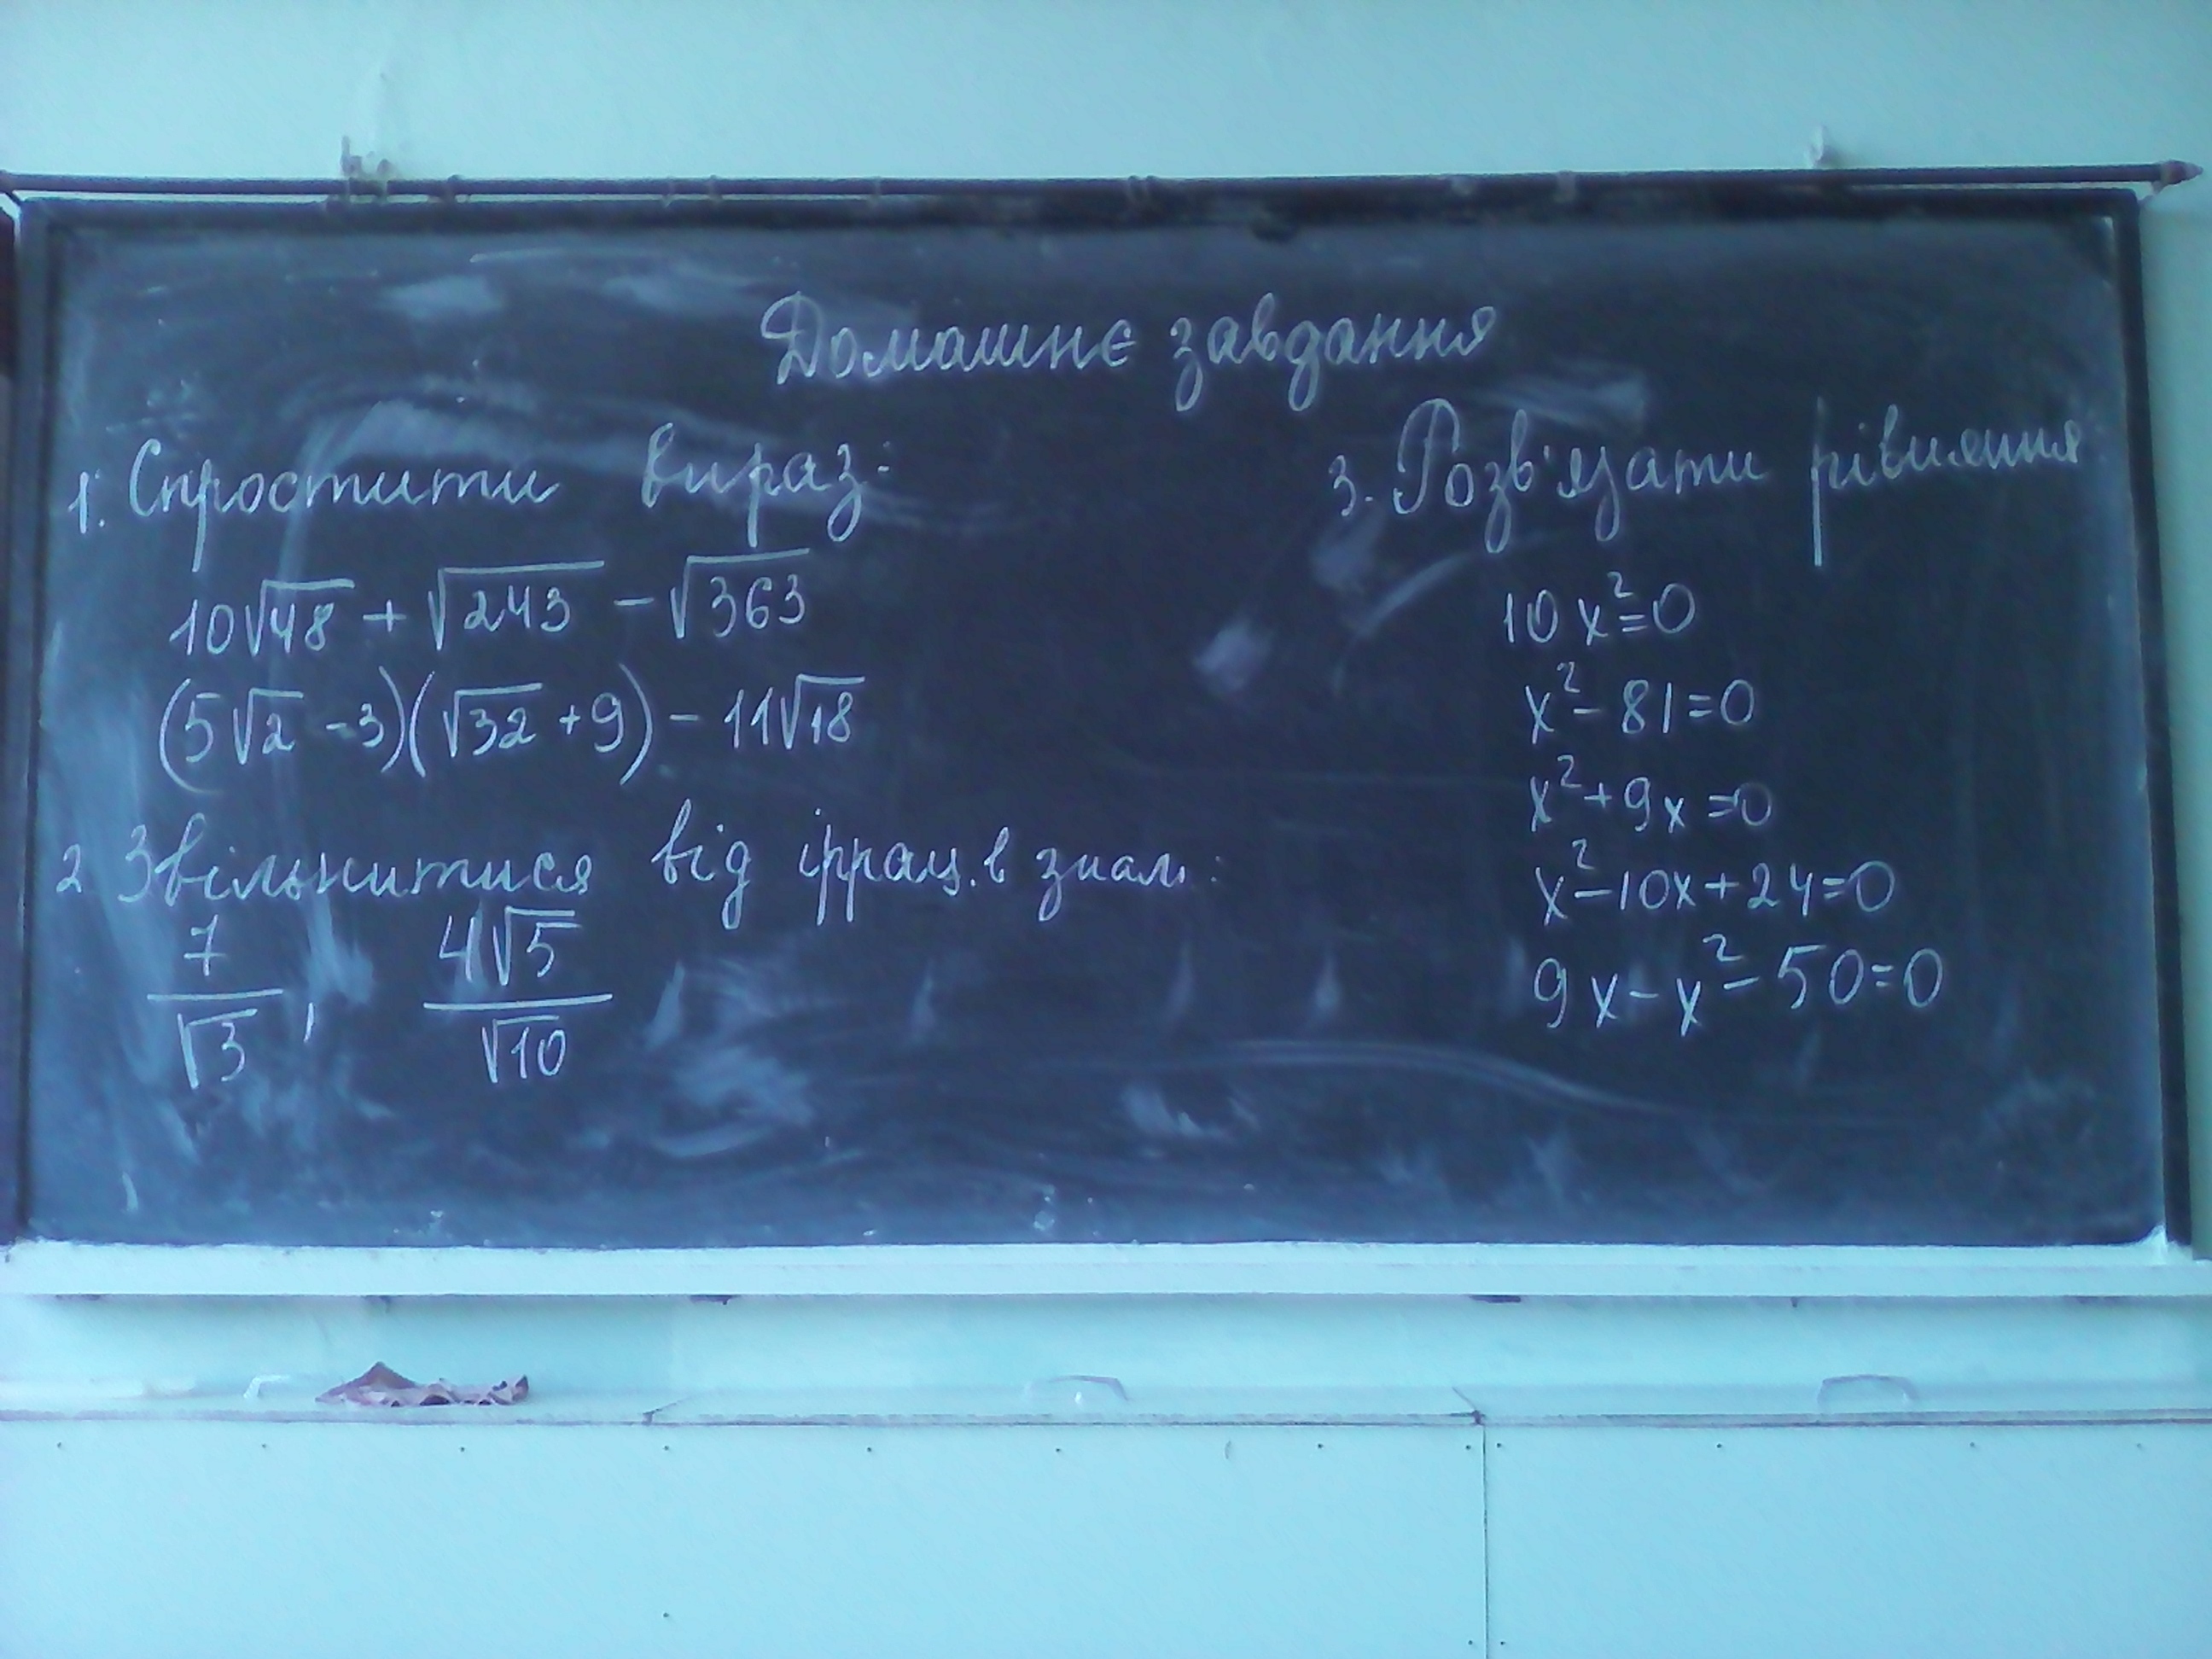 Домашнє завдання
1. Спростити вираз:
10√48 + √243 - √363
(5√2 - 3)(√32 + 9) - 11√18
2 Звільнитися від іррац. в знам.:
7/√3 , 4√5/√10
3. Розв'язати рівняння
10x²=0
x²-81=0
x²+9x=0
x²-10x+24=0
9x-x²-50=0